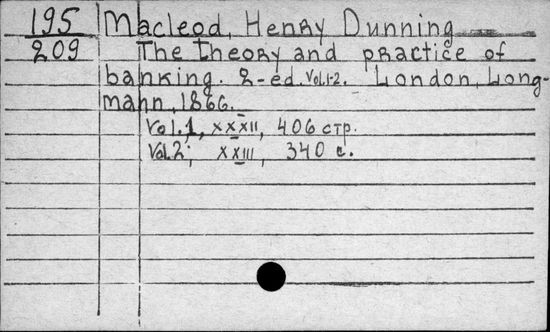 195 Macleod, Henry Dunning
209 The theory and practice of
banking. 2-ed. Vol.1-2. London, Long-
mann, 1866.
Vol.1, XXXII, 406 стр.
Vol.2; XXIII, 340 с.